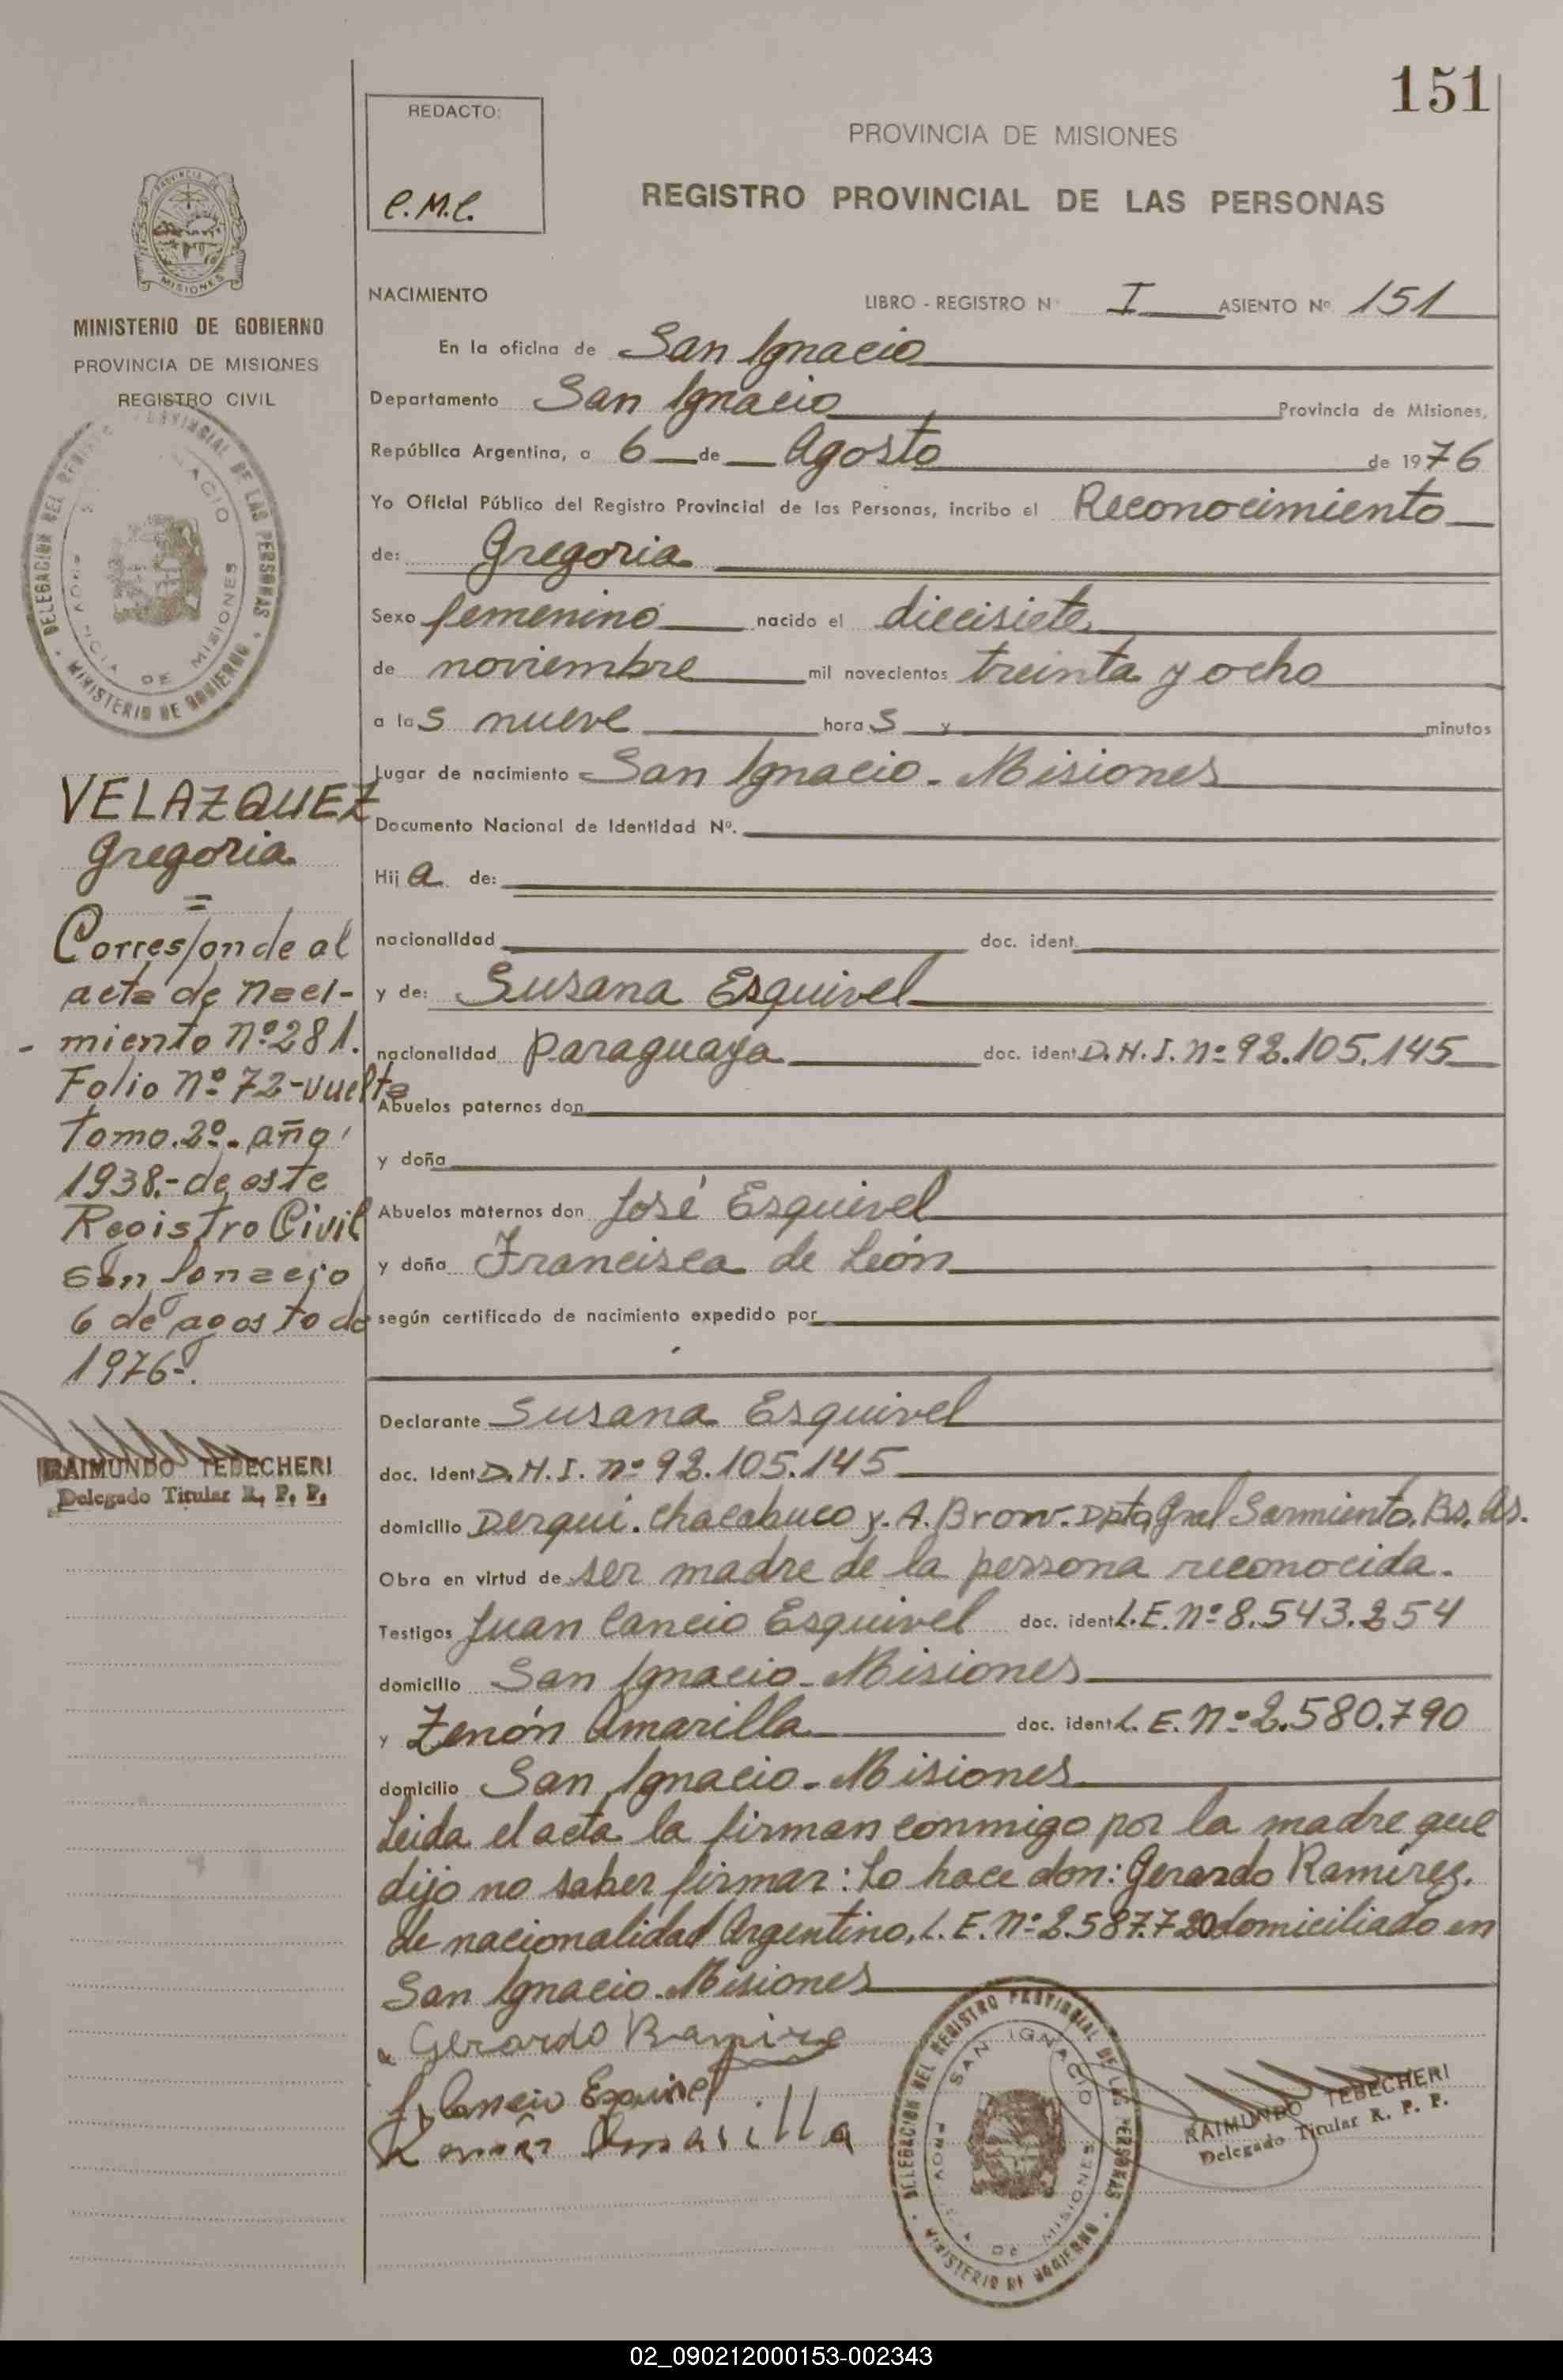 151
REDACTO:
C.M.C.
PROVINCIA DE MISIONES
REGISTRO PROVINCIAL DE LAS PERSONAS
PROVINCIA DE
MISIONES
MINISTERIO DE GOBIERNO
PROVINCIA DE MISIONES
REGISTRO CIVIL
DELEGACION DEL REGISTRO PROVINCIAL DE LAS PERSONAS
MINISTERIO DE GOBIERNO
SAN IGNACIO
PROVINCIA DE MISIONES
VELAZQUEZ
Gregoria
=
Corresponde al
acta de naci-
miento Nº 281.
Folio Nº 72-vuelta
Tomo.2º. año
1938.- de este
Registro Civil
San Ignacio
6 de agosto de
1976-.
RAIMUNDO TEBECHERI
Delegado Titular R. P. P.
NACIMIENTO
LIBRO - REGISTRO Nº I ASIENTO Nº 151
En la oficina de San Ignacio
Departamento San Ignacio Provincia de Misiones,
República Argentina, a 6 de Agosto de 1976
Yo Oficial Público del Registro Provincial de las Personas, incribo el Reconocimiento
de: Gregoria
Sexo femenino nacido el diecisiete
de noviembre mil novecientos treinta y ocho
a las nueve horas y minutos
Lugar de nacimiento San Ignacio - Misiones
Documento Nacional de Identidad Nº.
Hija de:
nacionalidad doc. ident.
y de: Susana Esquivel
nacionalidad Paraguaya doc. ident. D.N.I. nº 92.105.145
Abuelos paternos don
y doña
Abuelos maternos don José Esquivel
y doña Francisca de León
según certificado de nacimiento expedido por
Declarante Susana Esquivel
doc. Ident. D.N.I. nº 92.105.145
domicilio Derqui. Chacabuco y. A. Brow. Dpto Gral Sarmiento. Bs. As.
Obra en virtud de ser madre de la persona reconocida.
Testigos Juan Cancio Esquivel doc. ident. L.E. Nº 8.543.254
domicilio San Ignacio - Misiones
y Zenón Amarilla doc. ident. L. E. Nº 2.580.790
domicilio San Ignacio - Misiones
Leida el acta la firman conmigo por la madre que
dijo no saber firmar: Lo hace don: Gerardo Ramírez.
de nacionalidad Argentino, L. E. Nº 2.587.720 domiciliado en
San Ignacio - Misiones
Gerardo Ramirez
J. Cancio Esquivel
Zenón Amarilla
DELEGACION DEL REGISTRO PROVINCIAL DE LAS PERSONAS
MINISTERIO DE GOBIERNO
SAN IGNACIO
PROV DE MISIONES
RAIMUNDO TEBECHERI
Delegado Titular R. P. P.
02_090212000153-002343